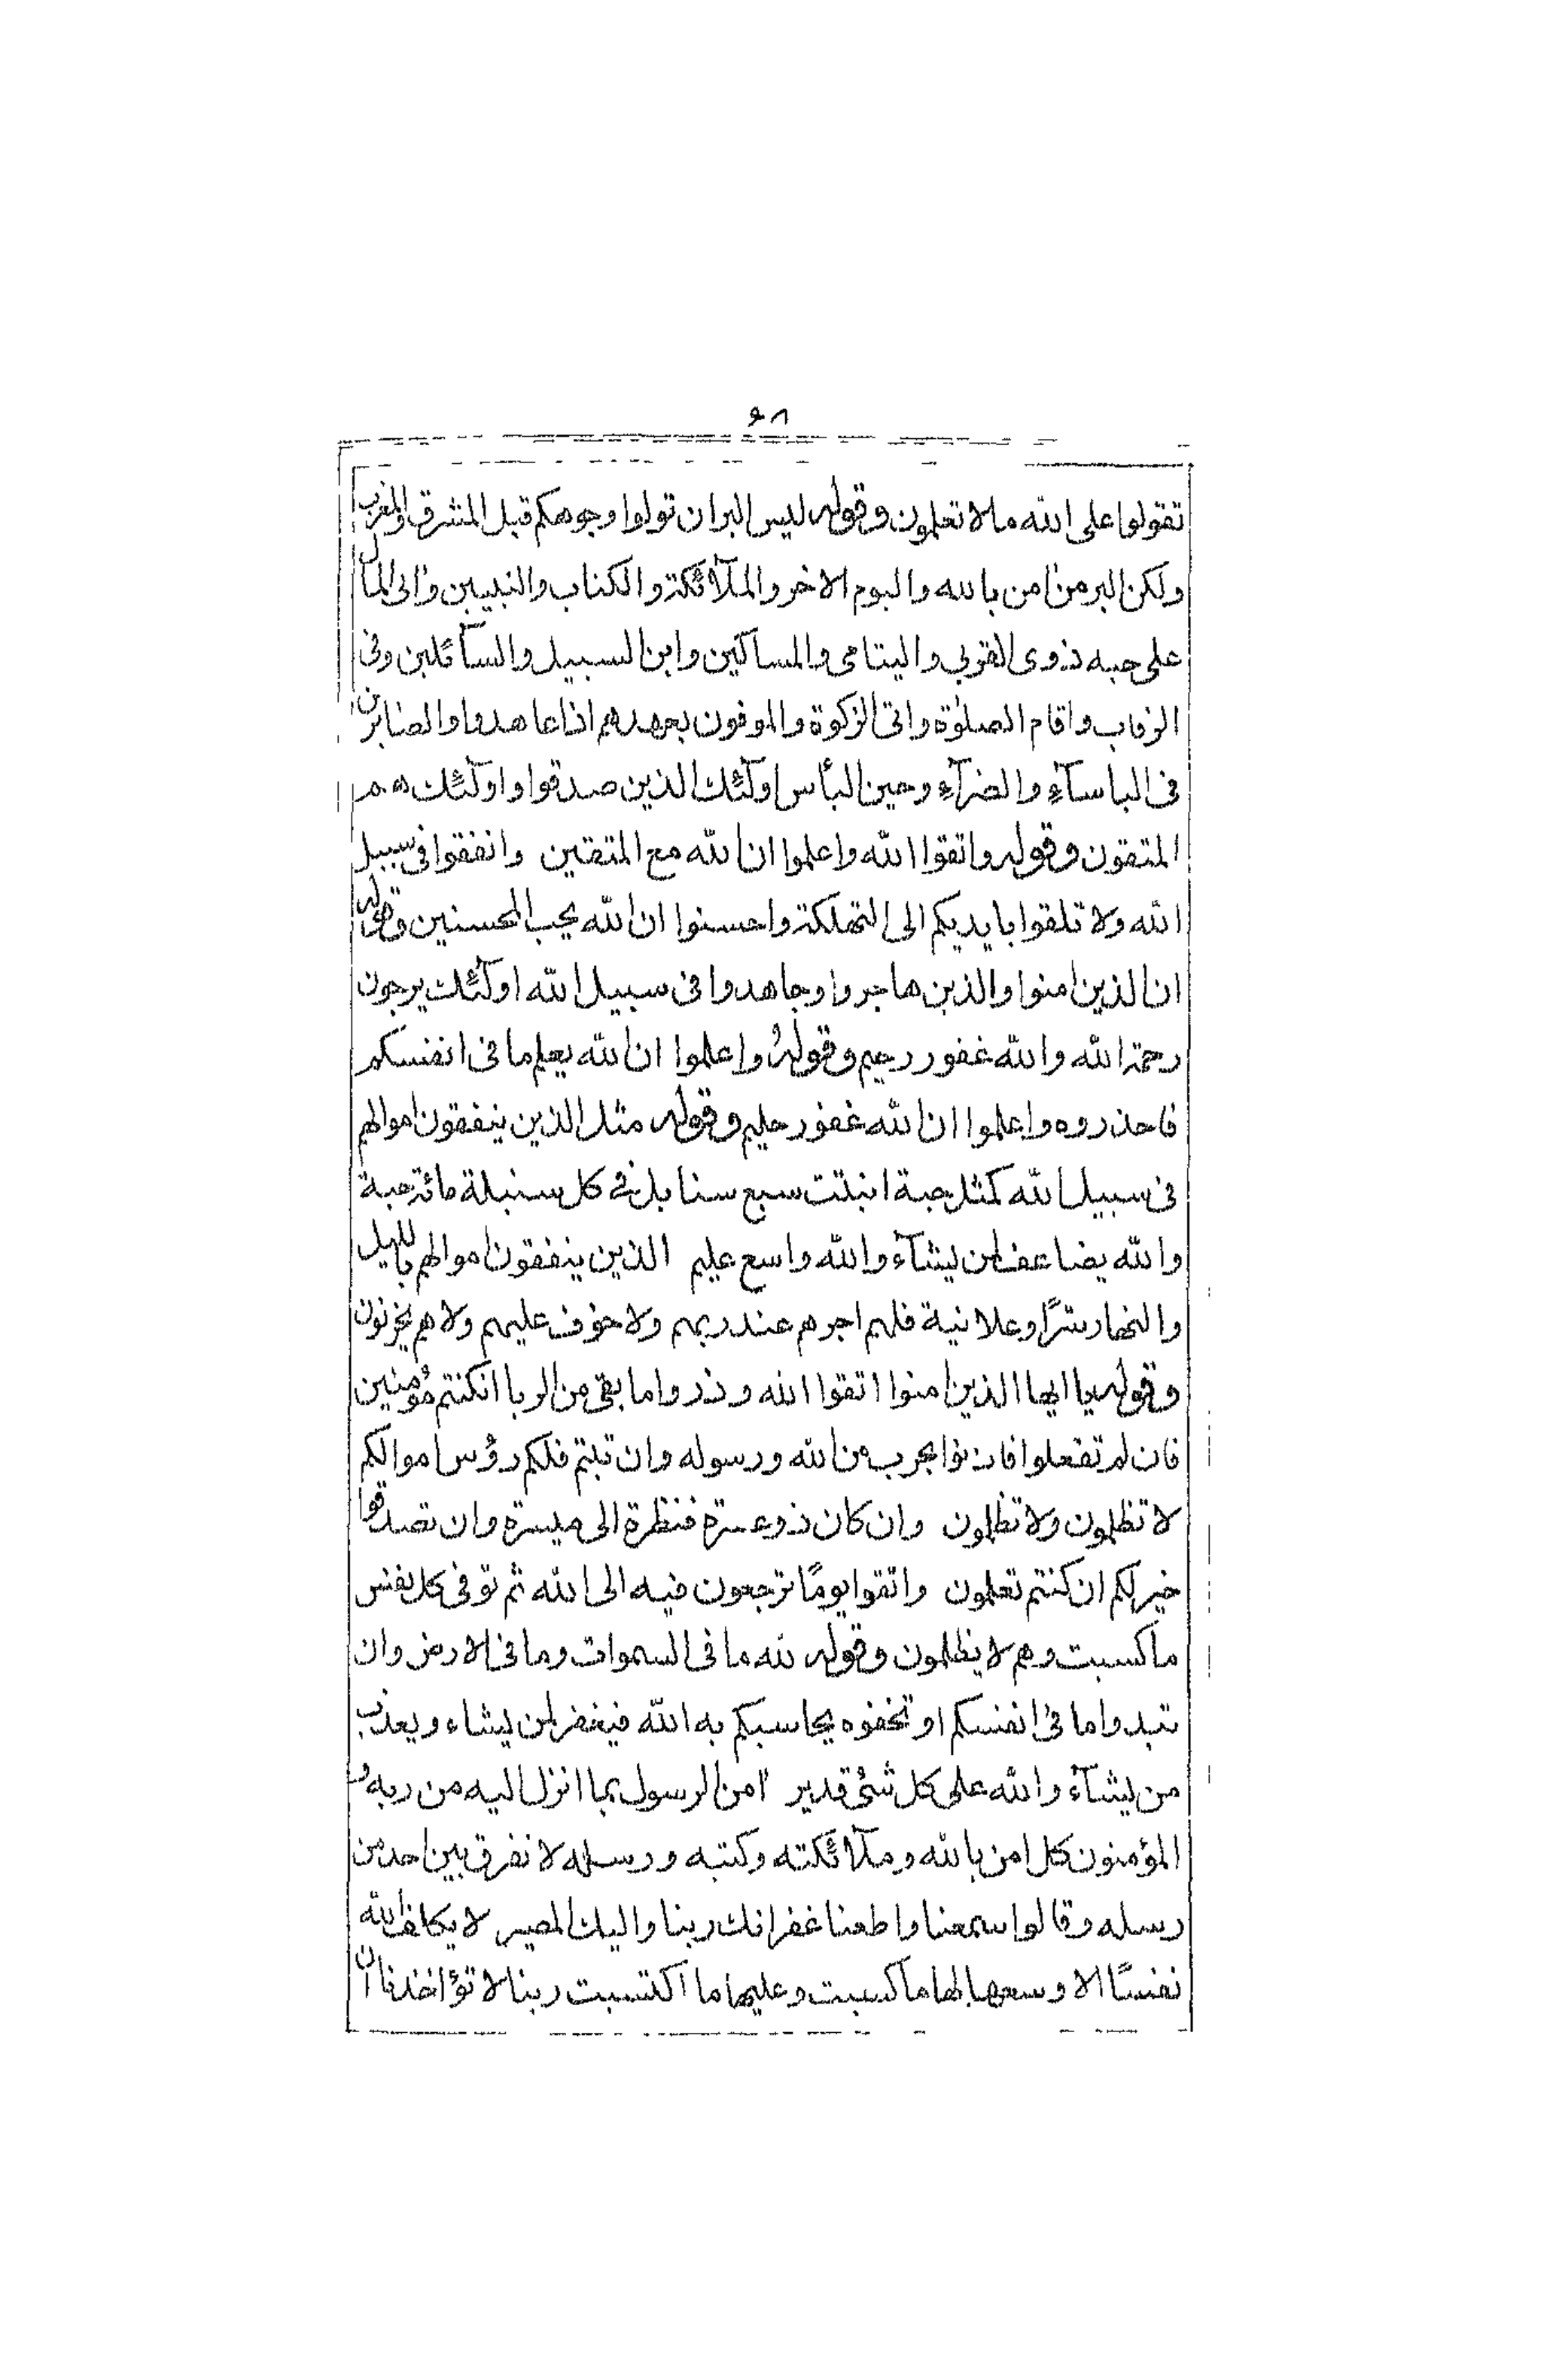 ٤٨
تقولوا على الله ما لا تعلمون وقوله ليس البر ان تولوا وجوهكم قبل المشرق والمغرب
ولكن البر من امن بالله واليوم الاخر والملآئكة والكتاب والنبيين واتى المال
على حبه ذوى القربى واليتامى والمساكين وابن السبيل والسآئلين وفى
الرقاب واقام الصلوة واتى الزكوة والموفون بعهدهم اذا عاهدوا والصابرين
فى الباسآء والضرآء وحين البأس اولٓئك الذين صدقوا واولٓئك هم
المتقون وقوله واتقوا الله واعلموا ان الله مع المتقين وانفقوا فى سبيل
الله ولا تلقوا بايديكم الى التهلكة واحسنوا ان الله يحب المحسنين وقوله
ان الذين امنوا والذين هاجروا وجاهدوا فى سبيل الله اولٓئك يرجون
رحمة الله والله غفور رحيم وقولهُ واعلموا ان الله يعلم ما فى انفسكم
فاحذروه واعلموا ان الله غفور حليم وقوله مثل الذين ينفقون اموالهم
فى سبيل الله كمثل حبة انبتت سبع سنابل فى كل سنبلة مائة حبة
والله يضاعف لمن يشآء والله واسع عليم الذين ينفقون اموالهم بالليل
والنهار سرًّا وعلانية فلهم اجرهم عند ربهم ولا خوف عليهم ولا هم يحزنون
وقوله يا ايها الذين امنوا اتقوا الله وذروا ما بقى من الربا ان كنتم مُؤمنين
فان لم تفعلوا فاذنوا بحرب من الله ورسوله وان تبتم فلكم رؤس اموالكم
لا تظلمون ولا تظلمون وان كان ذو عسرة فنظرة الى ميسرة وان تصدقوا
خير لكم ان كنتم تعلمون واتقوا يومًا ترجعون فيه الى الله ثم توفى كل نفس
ما كسبت وهم لا يظلمون وقوله لله ما فى السموات وما فى الارض وان
تبدوا ما فى انفسكم او تخفوه يحاسبكم به الله فيغفر لمن يشاء ويعذب
من يشآء والله على كل شئ قدير امن الرسول بما انزل اليه من ربه و
المؤمنون كل امن بالله وملآئكته وكتبه ورسله لا نفرق بين احد من
رسله وقالوا سمعنا واطعنا غفرانك ربنا واليك المصير لا يكلف الله
نفسًا الا وسعها لها ما كسبت وعليها ما اكتسبت ربنا لا تؤاخذنا ان